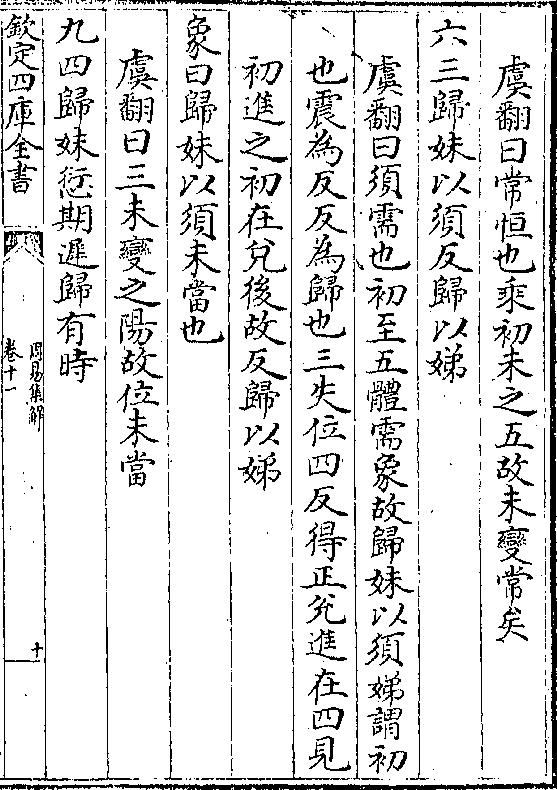 虞翻曰常恒也乘初未之五故未變常矣
六三歸妹以須反歸以娣
虞翻曰須需也初至五體需象故歸妹以須娣謂初
也震為反反為歸也三失位四反得正兌進在四見
初進之初在兌後故反歸以娣
象曰歸妹以須未當也
虞翻曰三未變之陽故位未當
九四歸妹愆期遲歸有時
欽定四庫全書
周易集解
卷十一
十